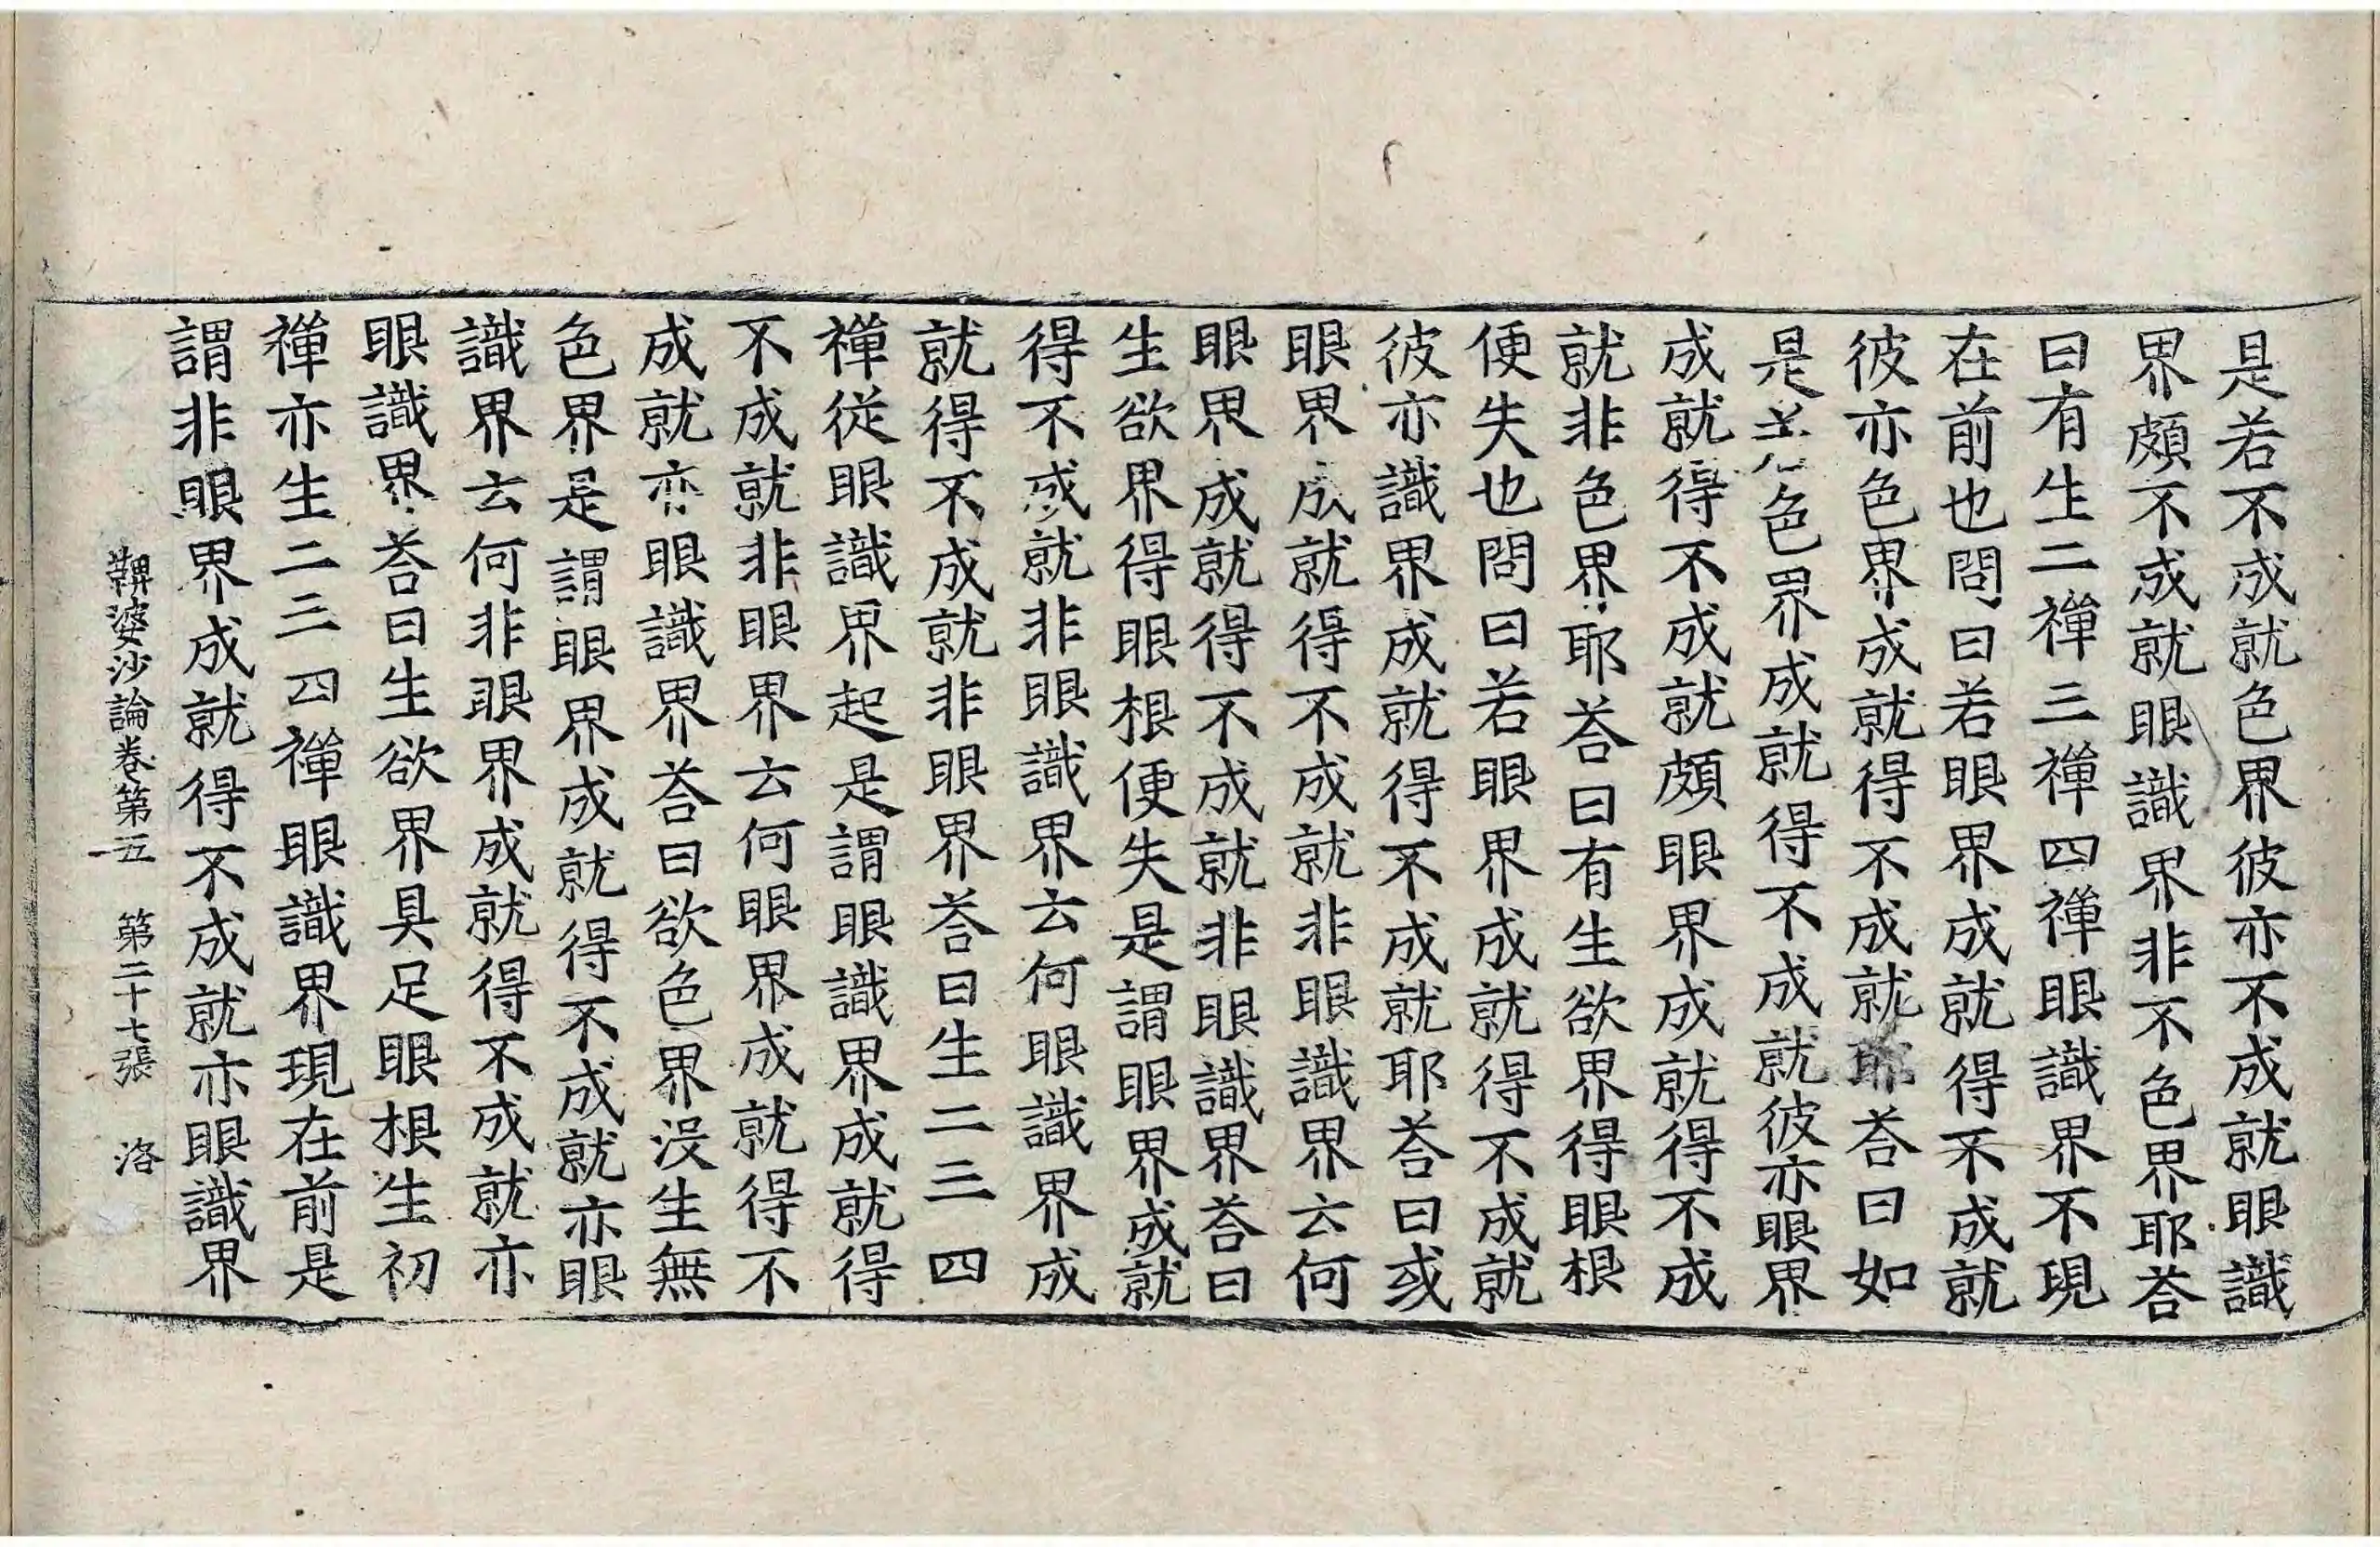 是若不成就色界彼亦不成就眼識
界頗不成就眼識界非不色界耶荅
曰有生二禪三禪四禪眼識界不現
在前也問曰若眼界成就得不成就
彼亦色界成就得不成就耶荅曰如
是若色界成就得不成就彼亦眼界
成就得不成就頗眼界成就得不成
就非色界耶荅曰有生欲界得眼根
便失也問曰若眼界成就得不成就
彼亦識界成就得不成就耶荅曰或
眼界成就得不成就非眼識界云何
眼界成就得不成就非眼識界荅曰
生欲界得眼根便失是謂眼界成就
得不成就非眼識界云何眼識界成
就得不成就非眼界荅曰生二三四
禪從眼識界起是謂眼識界成就得
不成就非眼界云何眼界成就得不
成就亦眼識界荅曰欲色界沒生無
色界是謂眼界成就得不成就亦眼
識界云何非眼界成就得不成就亦
眼識界荅曰生欲界具足眼根生初
禪亦生二三四禪眼識界現在前是
謂非眼界成就得不成就亦眼識界
鞞婆沙論卷第五 第二十七張 洛